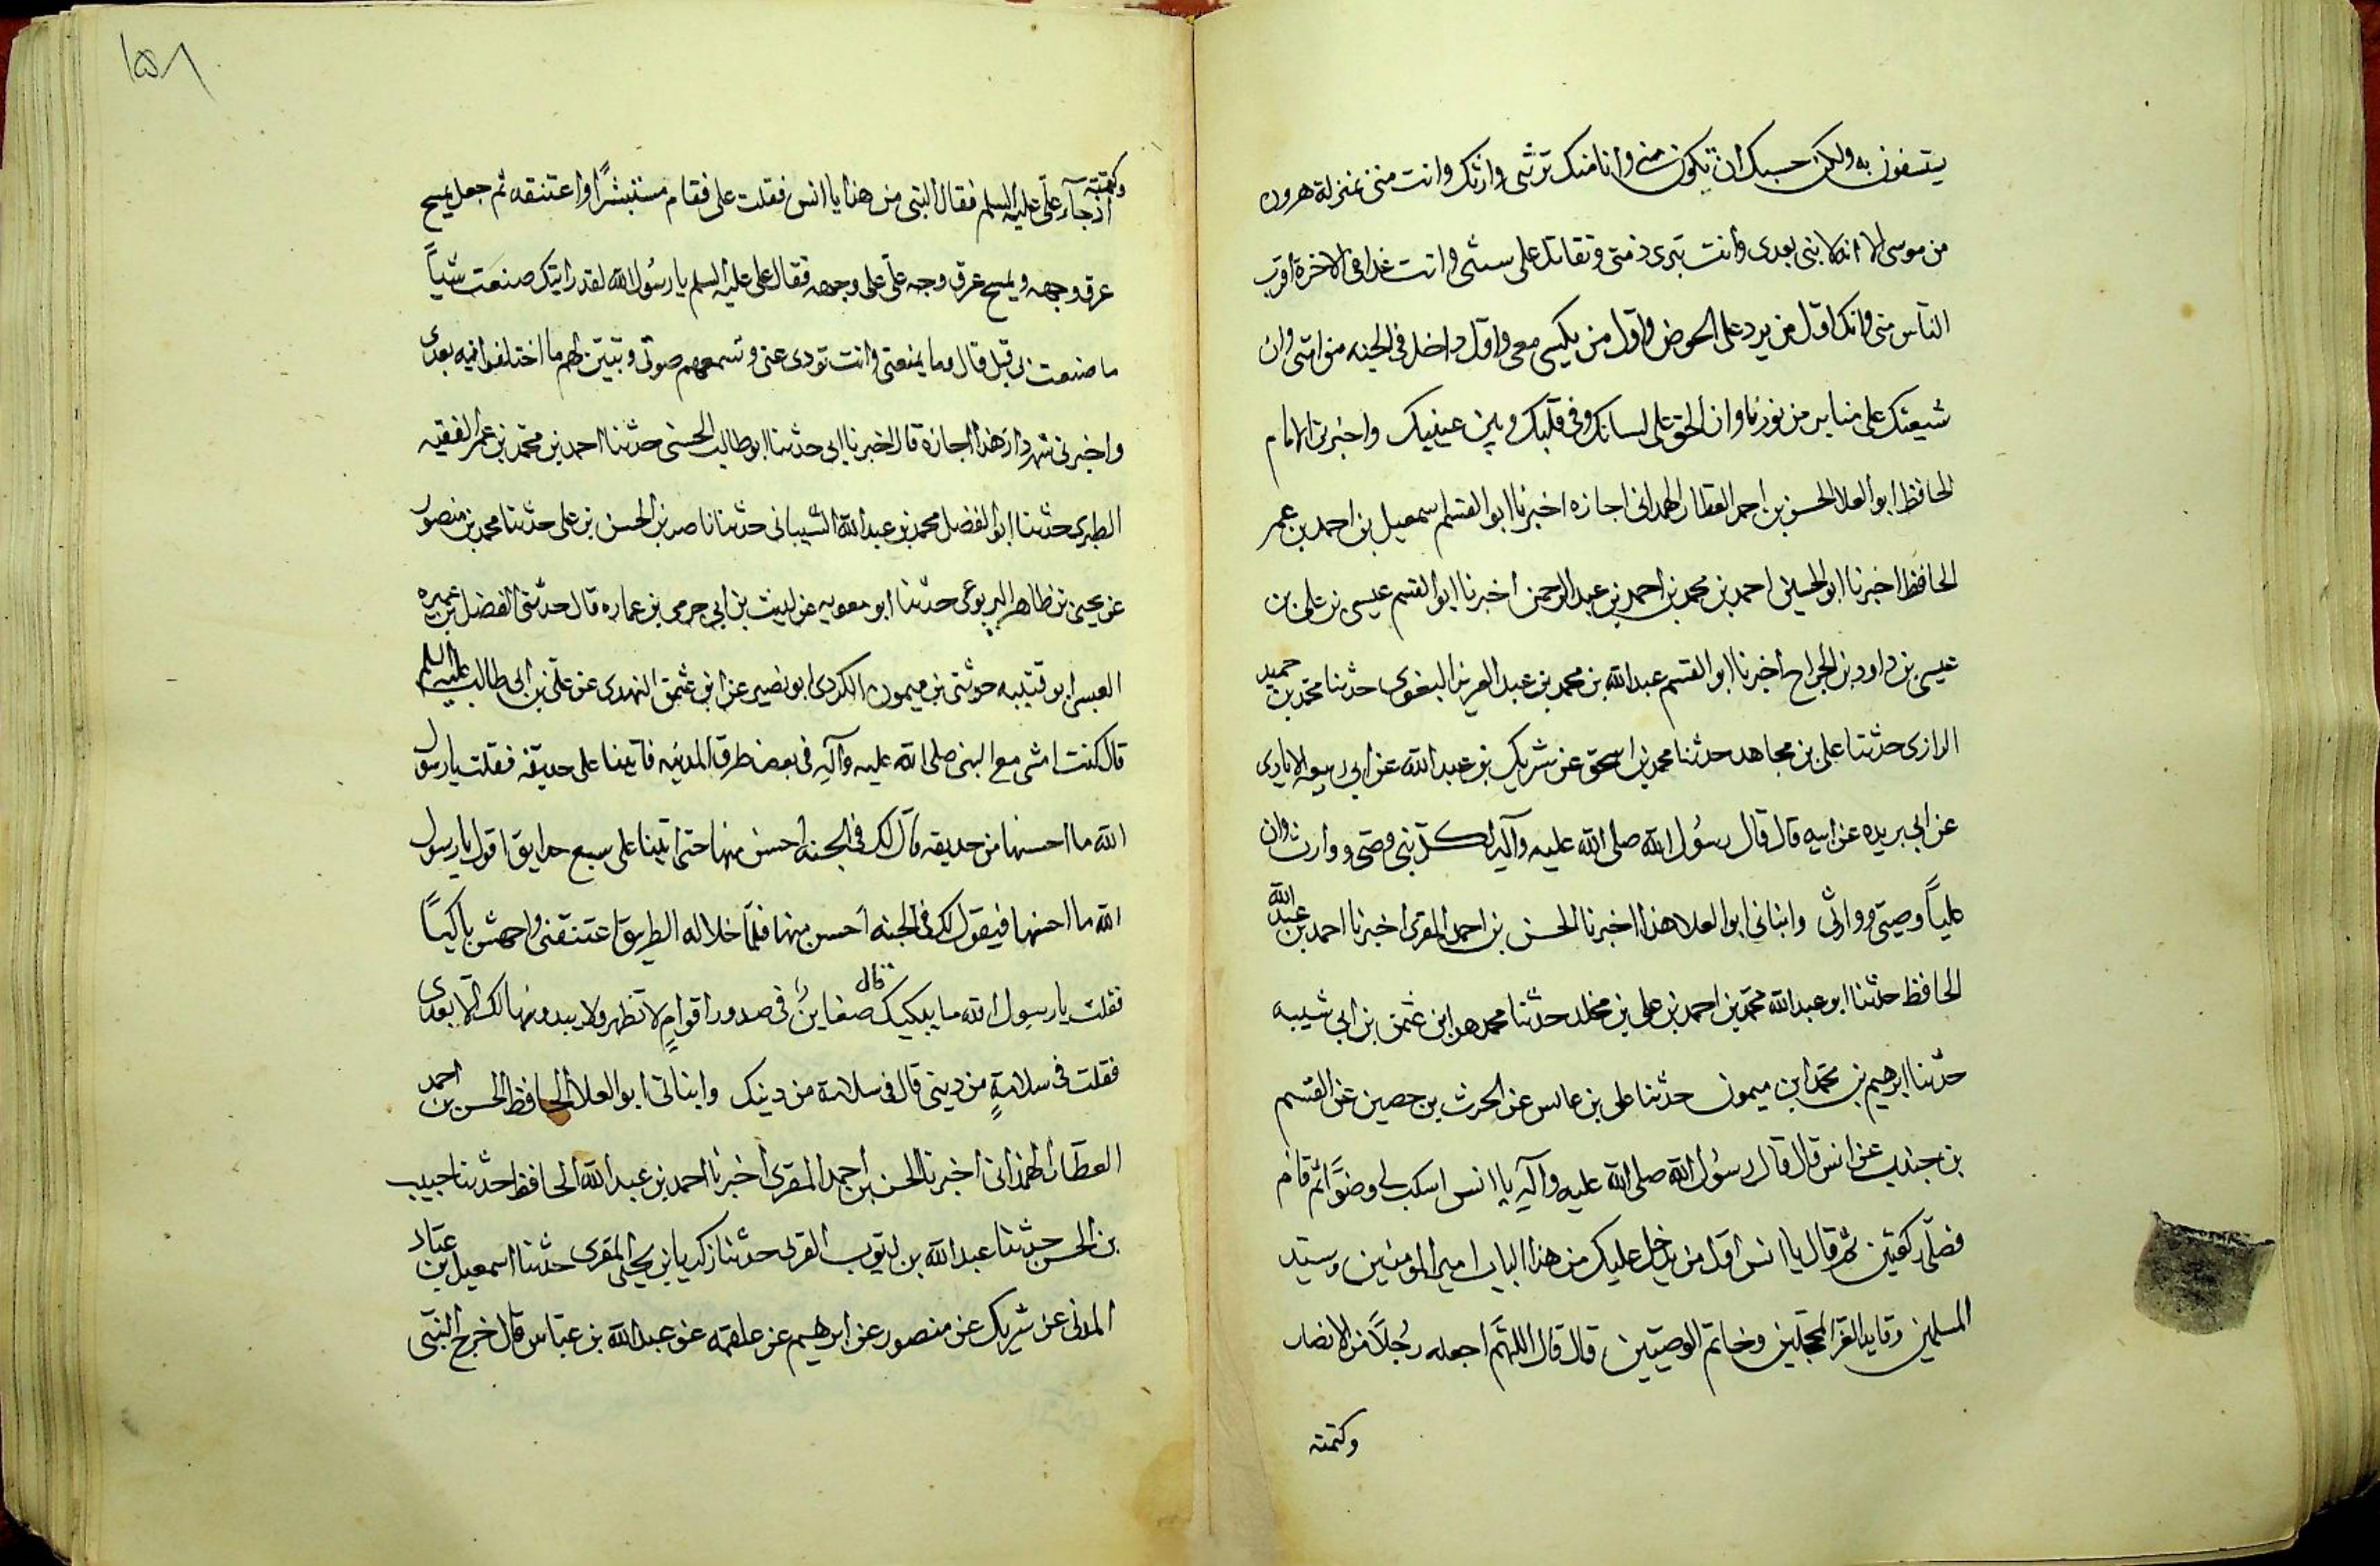 يستسفون به ولكن حسبك ان تكون مني وانا منك ترثني وارثك وانت مني بمنزلة هرون
من موسى الا انه لا نبي بعدى وانت تبرى ذمتى وتقاتل على سنتى وانت غدا فى الاخرة اقرب
الناس منى وانك اول من يرد على الحوض واول من يكسى معى واول داخل فى الجنه من امتى وان
شيعتك على منابر من نور نا وان الحق على لسانك وفى قلبك وبين عينيك واخبرنى الامام
الحافظ ابو العلا الحسن بن احمد العطار الهمدانى اجازه اخبرنا ابو القسم اسمعيل بن احمد بن عمر
الحافظ اخبرنا ابو الحسين احمد بن محمد بن احمد بن عبد الرحمن اخبرنا ابو القسم عيسى بن على بن
عيسى بن داود بن الجراح اخبرنا ابو القسم عبد الله بن محمد بن عبد العزيز البغوى حدثنا محمد بن حميد
الرازى حدثنا على بن مجاهد حدثنا محمد بن اسحق عن شريك بن عبد الله عن ابى ربيعه الايادى
عن ابى بريده عن ابيه قال قال رسول الله صلى الله عليه وآله لكل نبى وصى ووارث وان
علياً وصيتى ووارثى وانبانى ابو العلا هذا اخبرنا الحسن بن احمد المقرى اخبرنا احمد بن عبد الله
الحافظ حدثنا ابو عبد الله محمد بن احمد بن على بن مخلد حدثنا محمد هو ابن عثمن بن ابى شيبه
حدثنا ابرهيم بن محمد ابن ميمون حدثنا على بن عابس عن الحرث بن حصين عن القسم
بن جندب عن انس قال قال رسول الله صلى الله عليه وآله يا انس اسكب لى وضوًا ثم قام
فصلّى ركعتين ثم قال يا انس اول من يدخل عليك من هذا الباب امير المومنين وسيد
المسلمين وقايد الغر المحجلين وخاتم الوصيّين قال قال اللهمّ اجعله رجلاً من الانصار
وكتمته
١٥٨
وكتمته اذ جآء علّى عليه السلم فقال النبى من هذا يا انس فقلت على فقام مستبشرًا واعتنقه ثم جعل يمسح
عرق وجهه ويمسح عرق وجه علّى على وجهه فقال على عليه السلم يا رسول الله لقد رايتك صنعت شياً
ما صنعت بى قبل قال وما يمنعنى وانت تودى عنى وتسمعهم صوتى وتبين لهم ما اختلفوا فيه بعدى
واخبرنى شهردار هذا اجازة قال اخبرنا ابى حدثنا ابو طالب الحسنى حدثنا احمد بن محمد بن عمر الفقيه
الطبرى حدثنا ابو الفضل محمد بن عبد الله الشيبانى حدثنا ناصر بن الحسن بن على حدثنا محمد بن منصور
عن يحيى بن طاهر اليربوعى حدثنا ابو معويه عن ليث بن ابى حرمى بن عماره قال حدثنى الفضل بن عميره
العبسى ابو قتيبه حدثنى ميمون الكردى ابو نصير عن ابى عثمن النهدى عن على بن ابى طالب عليه السلم
قال كنت امشى مع النبى صلى الله عليه وآله فى بعض طرق المدينه فاتينا على حديقه فقلت يا رسول
الله ما احسنها من حديقه قال لك فى الجنه احسن منها حتى اتينا على سبع حدايق اقول يا رسول
الله ما احسنها فيقول لك فى الجنه احسن منها فلما خلا له الطريق اعتنقنى واجهش باكيًا
فقلت يا رسول الله ما يبكيك قال ضغاين فى صدور اقوامٍ لا تظهر ولا يبدونها لك الا بعدى
فقلت فى سلامةٍ من دينى قال فى سلامة من دينك وانبانى ابو العلا الحافظ الحسن بن احمد
العطّار الهمذانى اخبرنا الحسن بن احمد المقرى اخبرنا احمد بن عبد الله الحافظ حدثنا حبيب
بن الحسن حدثنا عبد الله بن ايوب القربى حدثنا زكريا بن يحيى المقرى حدثنا اسمعيل بن عبّاد
المدنى عن شريك عن منصور عن ابرهيم عن علقمه عن عبد الله بن عبّاس قال خرج النبّى